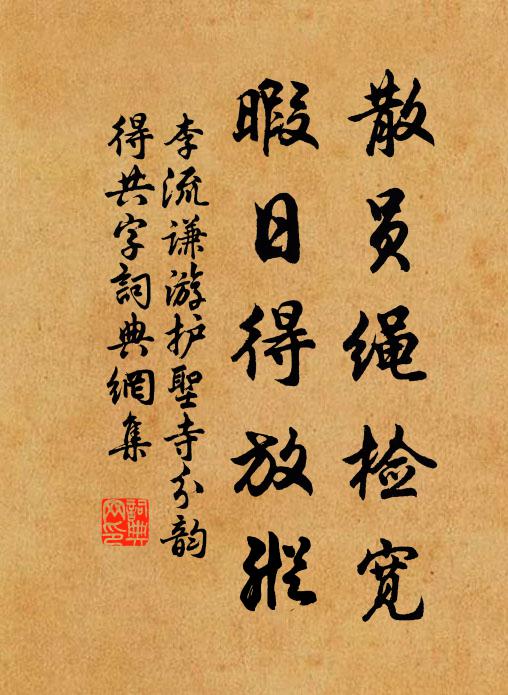 散员绳检宽
暇日得放纵
李流谦游护聖寺分韵
得共字詞典網集
詞典网印